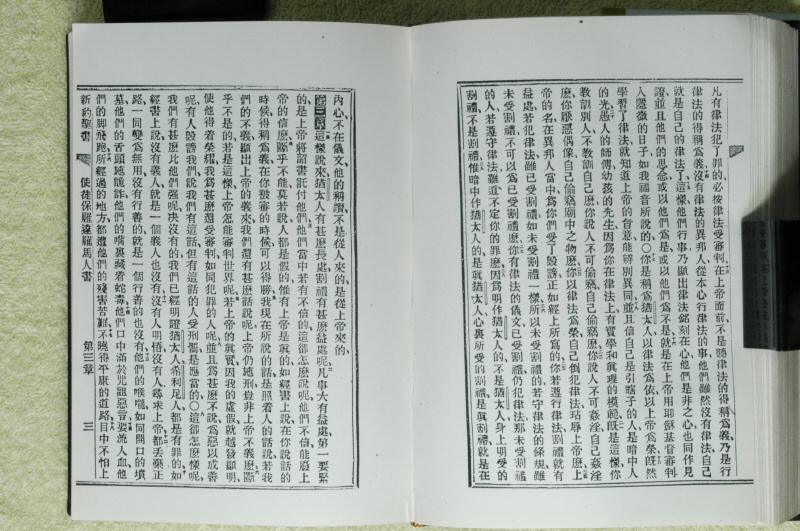 凡有律法犯了罪的必按律法受審判在上帝面前不是聽律法的得稱爲義乃是行
律法的得稱爲義沒有律法的異邦人從本心行律法的事他們雖然沒有律法自己
就是自己的律法了這樣他們行事乃顯出律法銘刻在心他們是非之心也同作見
證並且他們的思念或以他們爲是或以他們爲不是就是在上帝用耶穌基督審判
人隱微的日子如我福音所說的○你是稱爲猶太人以律法爲依以上帝爲榮旣然
學習了律法就知道上帝的旨意能辨別異同並且信自己是引瞎子的人是暗中人
的光愚人的師傅幼孩的先生因爲你在律法上有實學和眞理的模範旣是這樣你
教訓別人不教訓自己麽你說人不可偷竊自己偷竊麽你說人不可姦淫自己姦淫
麽你厭惡偶像自己偷竊廟中之物麽你以律法爲榮自己倒犯律法玷辱上帝麽上
帝的名在異邦人當中爲你們受了毀謗正如經上所寫的你若遵行律法割禮就有
益處若犯律法雖已受割禮如未受割禮一樣所以未受割禮的若守律法的條規雖
未受割禮不可以爲已受割禮麽你有律法的儀文已受割禮仍犯律法那未受割禮
的人若遵守律法難道不定你的罪麽因爲明作猶太人的不是猶太人身上明受的
割禮不是割禮惟暗中作猶太人的是眞猶太人心裏所受的割禮是眞割禮就是在
內心不在儀文他的稱讚不是從人來的是從上帝來的
第三章這樣說來猶太人有甚麽長處割禮有甚麽益處呢凡事大有益處第一要緊
的是上帝將詔書託付他們他們當中若有不信的這卻怎麽說呢他們不信能廢上
帝的信麽斷乎不能莫若說人都是假的惟有上帝是眞的如經書上說在你說話的
時候可得稱爲義在你被審的時候可以得勝我現在所說的話是照着人的話說若我
們的不義顯出上帝的義來我們還有甚麽話說呢上帝仍施刑豈非上帝不義麽斷
乎不是的若是這樣上帝怎能審判世界呢若上帝的眞實因我的虛假就越發顯明
使他得着榮耀我爲甚麽還受審判如同犯罪的人呢並且爲甚麽不說爲惡以成善
呢有人毀謗我們說我們有這話但有這話的人受刑罰是應當的○這卻怎麽樣呢
我們有甚麽比他們強呢決沒有的我們已經明證猶太人希利尼人都是有罪的如
經書上說沒有義人就是一個義人也沒有沒有人明悟沒有人尋求上帝都丟棄正
路一同變爲無用沒有行善的就是一個行善的也沒有他們的喉嚨如同開口的墳
墓他們的舌頭施詭詐他們的嘴裏藏着蛇毒他們口中滿於咒詛惡言要流人血他
們的脚飛跑所經過的地方都遭他們的殘害苦難不曉得平康的道路目中不怕上
新約聖書 使徒保羅達羅馬人書 第三章 三